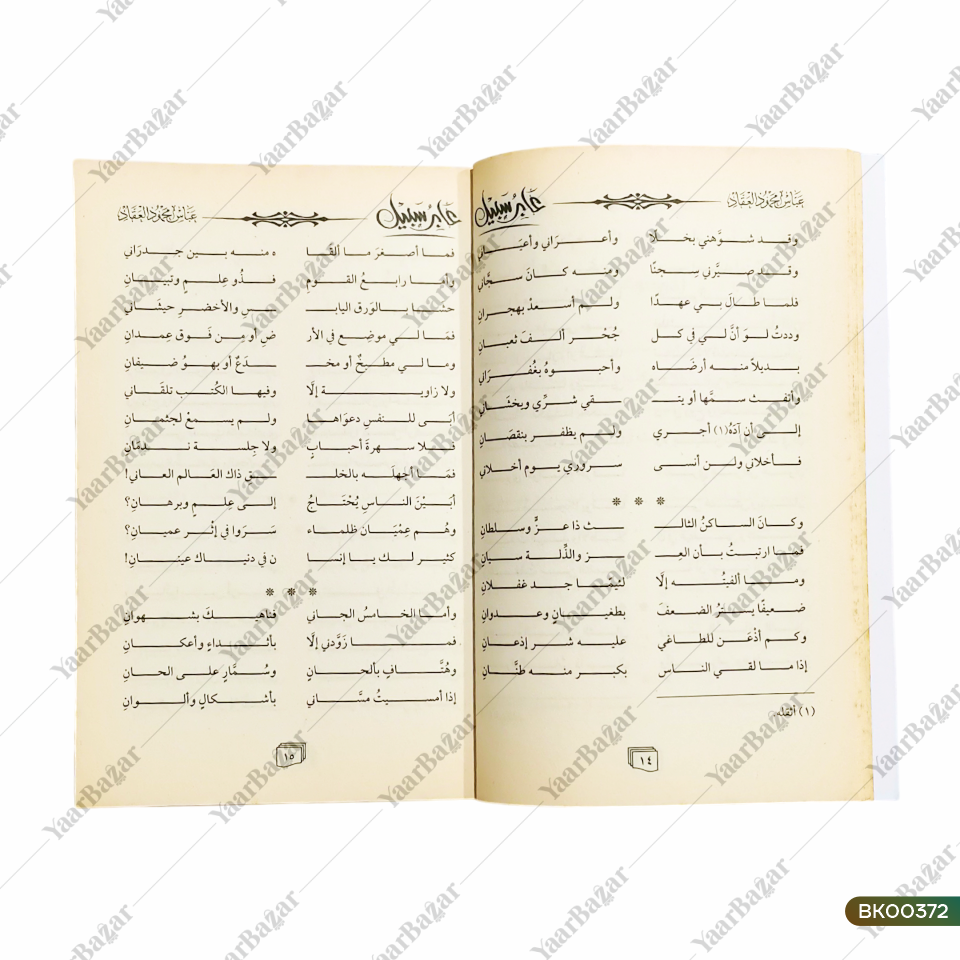 عباس محمود العقاد عابر سبيل
وقد شوَّهني بخلًا وأعراني وأعياني
وقد صيَّرني سجنًا ومنه كانَ سجَّاني
فلما طالَ بي عهدًا ولم أسعدْ بهجرانِ
وددتُ لوَ انَّ لي في كل جُحْر ألفَ ثعبانِ
بديلًا منه أرضَاه وأحبوهُ بغُفْرَاني
وأنفث سمَّها أو يتـ ـقي شرِّي ويخشَاني
إلى أن آدَهُ(١) أجري ولم يظفر بنقصَانِ
فأخلاني ولن أنسى سروري يوم أخلاني
* * *
وكانَ الساكنُ الثالـ ـث ذا عزٍّ وسلطانِ
فما ارتبتُ بأن العِـ ـز والذِّلة سيانِ
وما ألفيتُه إلَّا لئيمًا جد غفلانِ
ضعيفًا يسترُ الضعفَ بطغيانٍ وعدوانِ
وكم أذْعَن للطاغي عليه شر إذعانِ
إذا ما لقي الناس بكبر منه طنَّانِ
(١) أثقله.
١٤
عابر سبيل عباس محمود العقاد
فما أصغرَ ما ألقا ه منه بين جدرَاني
وأما رابعُ القومِ فذُو علِمٍ وتبيانِ
حشَا بالوَرق اليابـ ـس والأخضرِ حيثَاني
فمَا لي موضِع في الأر ضِ أو مِن فَوق عِمدانِ
وما لي مطبخٌ أو مخـ ـدَعٌ أو بهوُ ضيفانِ
ولا زاوية إلَّا وفيها الكُتب تلقَاني
أبَى للنفسِ دعوَاها ولم يسمعْ لجثمانِ
فلا سهرةَ أحبابٍ ولا جِلسة ندمَانِ
فمَا أجهلَه بالخلـ ـق ذاك العَالم العاني!
أبَيْنَ الناسِ يُحْتَاجُ إلى عِلمٍ وبرهانِ؟
وهُم عِمْيَان ظلماء سَرَوا في إثْر عميانِ؟
كثير لك يا إنسا ن في دنياك عينانِ!
* * *
وأما الخامسُ الجاني فناهيكَ بشهوانِ
فما زَوَّدني إلَّا بأثداءٍ وأعكانِ
وهُتَّافٍ بألحانٍ وسُمَّارٍ على الحانِ
إذا أمسيتُ مسَّاني بأشكالٍ وألوانِ
١٥
BK00372